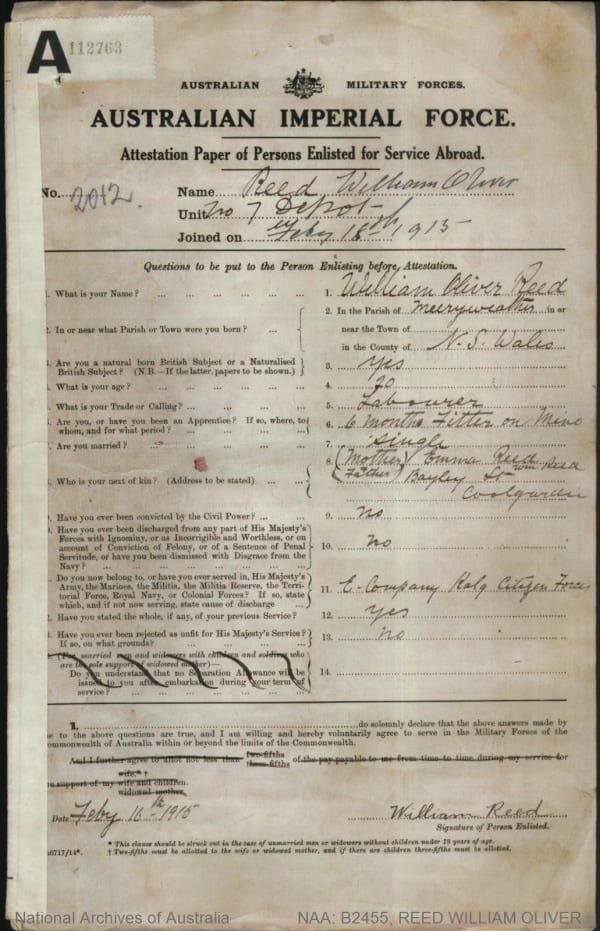 A 112763
AUSTRALIAN MILITARY FORCES.
AUSTRALIAN IMPERIAL FORCE.
Attestation Paper of Persons Enlisted for Service Abroad.
No. 2012. Name Reed William Oliver
Unit No 7 Depot
Joined on Feby 16th 1915
Questions to be put to the Person Enlisting before Attestation.
1. What is your Name? ... 1. William Oliver Reed
2. In or near what Parish or Town were you born? ... 2. In the Parish of Merryweather in or
near the Town of
in the County of N. S. Wales
3. Are you a natural born British Subject or a Naturalised
British Subject? (N.B.—If the latter, papers to be shown.) 3. yes
4. What is your age? ... 4. 20
5. What is your Trade or Calling? ... 5. Labourer
6. Are you, or have you been an Apprentice? If so, where, to
whom, and for what period? ... 6. 6 months Fitter on Mine
7. Are you married? ... 7. single
8. Who is your next of kin? (Address to be stated) ... 8. (Mother) Emma Reed
(Father) Wm Reed
Bayley St
Coolgardie
9. Have you ever been convicted by the Civil Power? ... 9. no
10. Have you ever been discharged from any part of His Majesty's
Forces with Ignominy, or as Incorrigible and Worthless, or on
account of Conviction of Felony, or of a Sentence of Penal
Servitude, or have you been dismissed with Disgrace from the
Navy? ... 10. no
Do you now belong to, or have you ever served in, His Majesty's
Army, the Marines, the Militia, the Militia Reserve, the Terri-
torial Force, Royal Navy, or Colonial Forces? If so, state
which, and if not now serving, state cause of discharge 11. E-Company Kalg Citizen Forces
2. Have you stated the whole, if any, of your previous Service? 12. yes
3. Have you ever been rejected as unfit for His Majesty's Service?
If so, on what grounds? 13. no
(For married men and widowers with children and soldiers who
are the sole support of widowed mother)—
Do you understand that no Separation Allowance will be
issued to you after embarkation during your term of
service? ... 14.
I, do solemnly declare that the above answers made by
me to the above questions are true, and I am willing and hereby voluntarily agree to serve in the Military Forces of the
Commonwealth of Australia within or beyond the limits of the Commonwealth.
And I further agree to allot not less than two-fifths three-fifths of the pay payable to me from time to time during my service for
wife,* †
on support of my wife and children.
widowed mother,
Date Feby 16th 1915 William Reed
Signature of Person Enlisted.
* This clause should be struck out in the case of unmarried men or widowers without children under 18 years of age.
† Two-fifths must be allotted to the wife or widowed mother, and if there are children three-fifths must be allotted.
6717/14*.
National Archives of Australia NAA: B2455, REED WILLIAM OLIVER